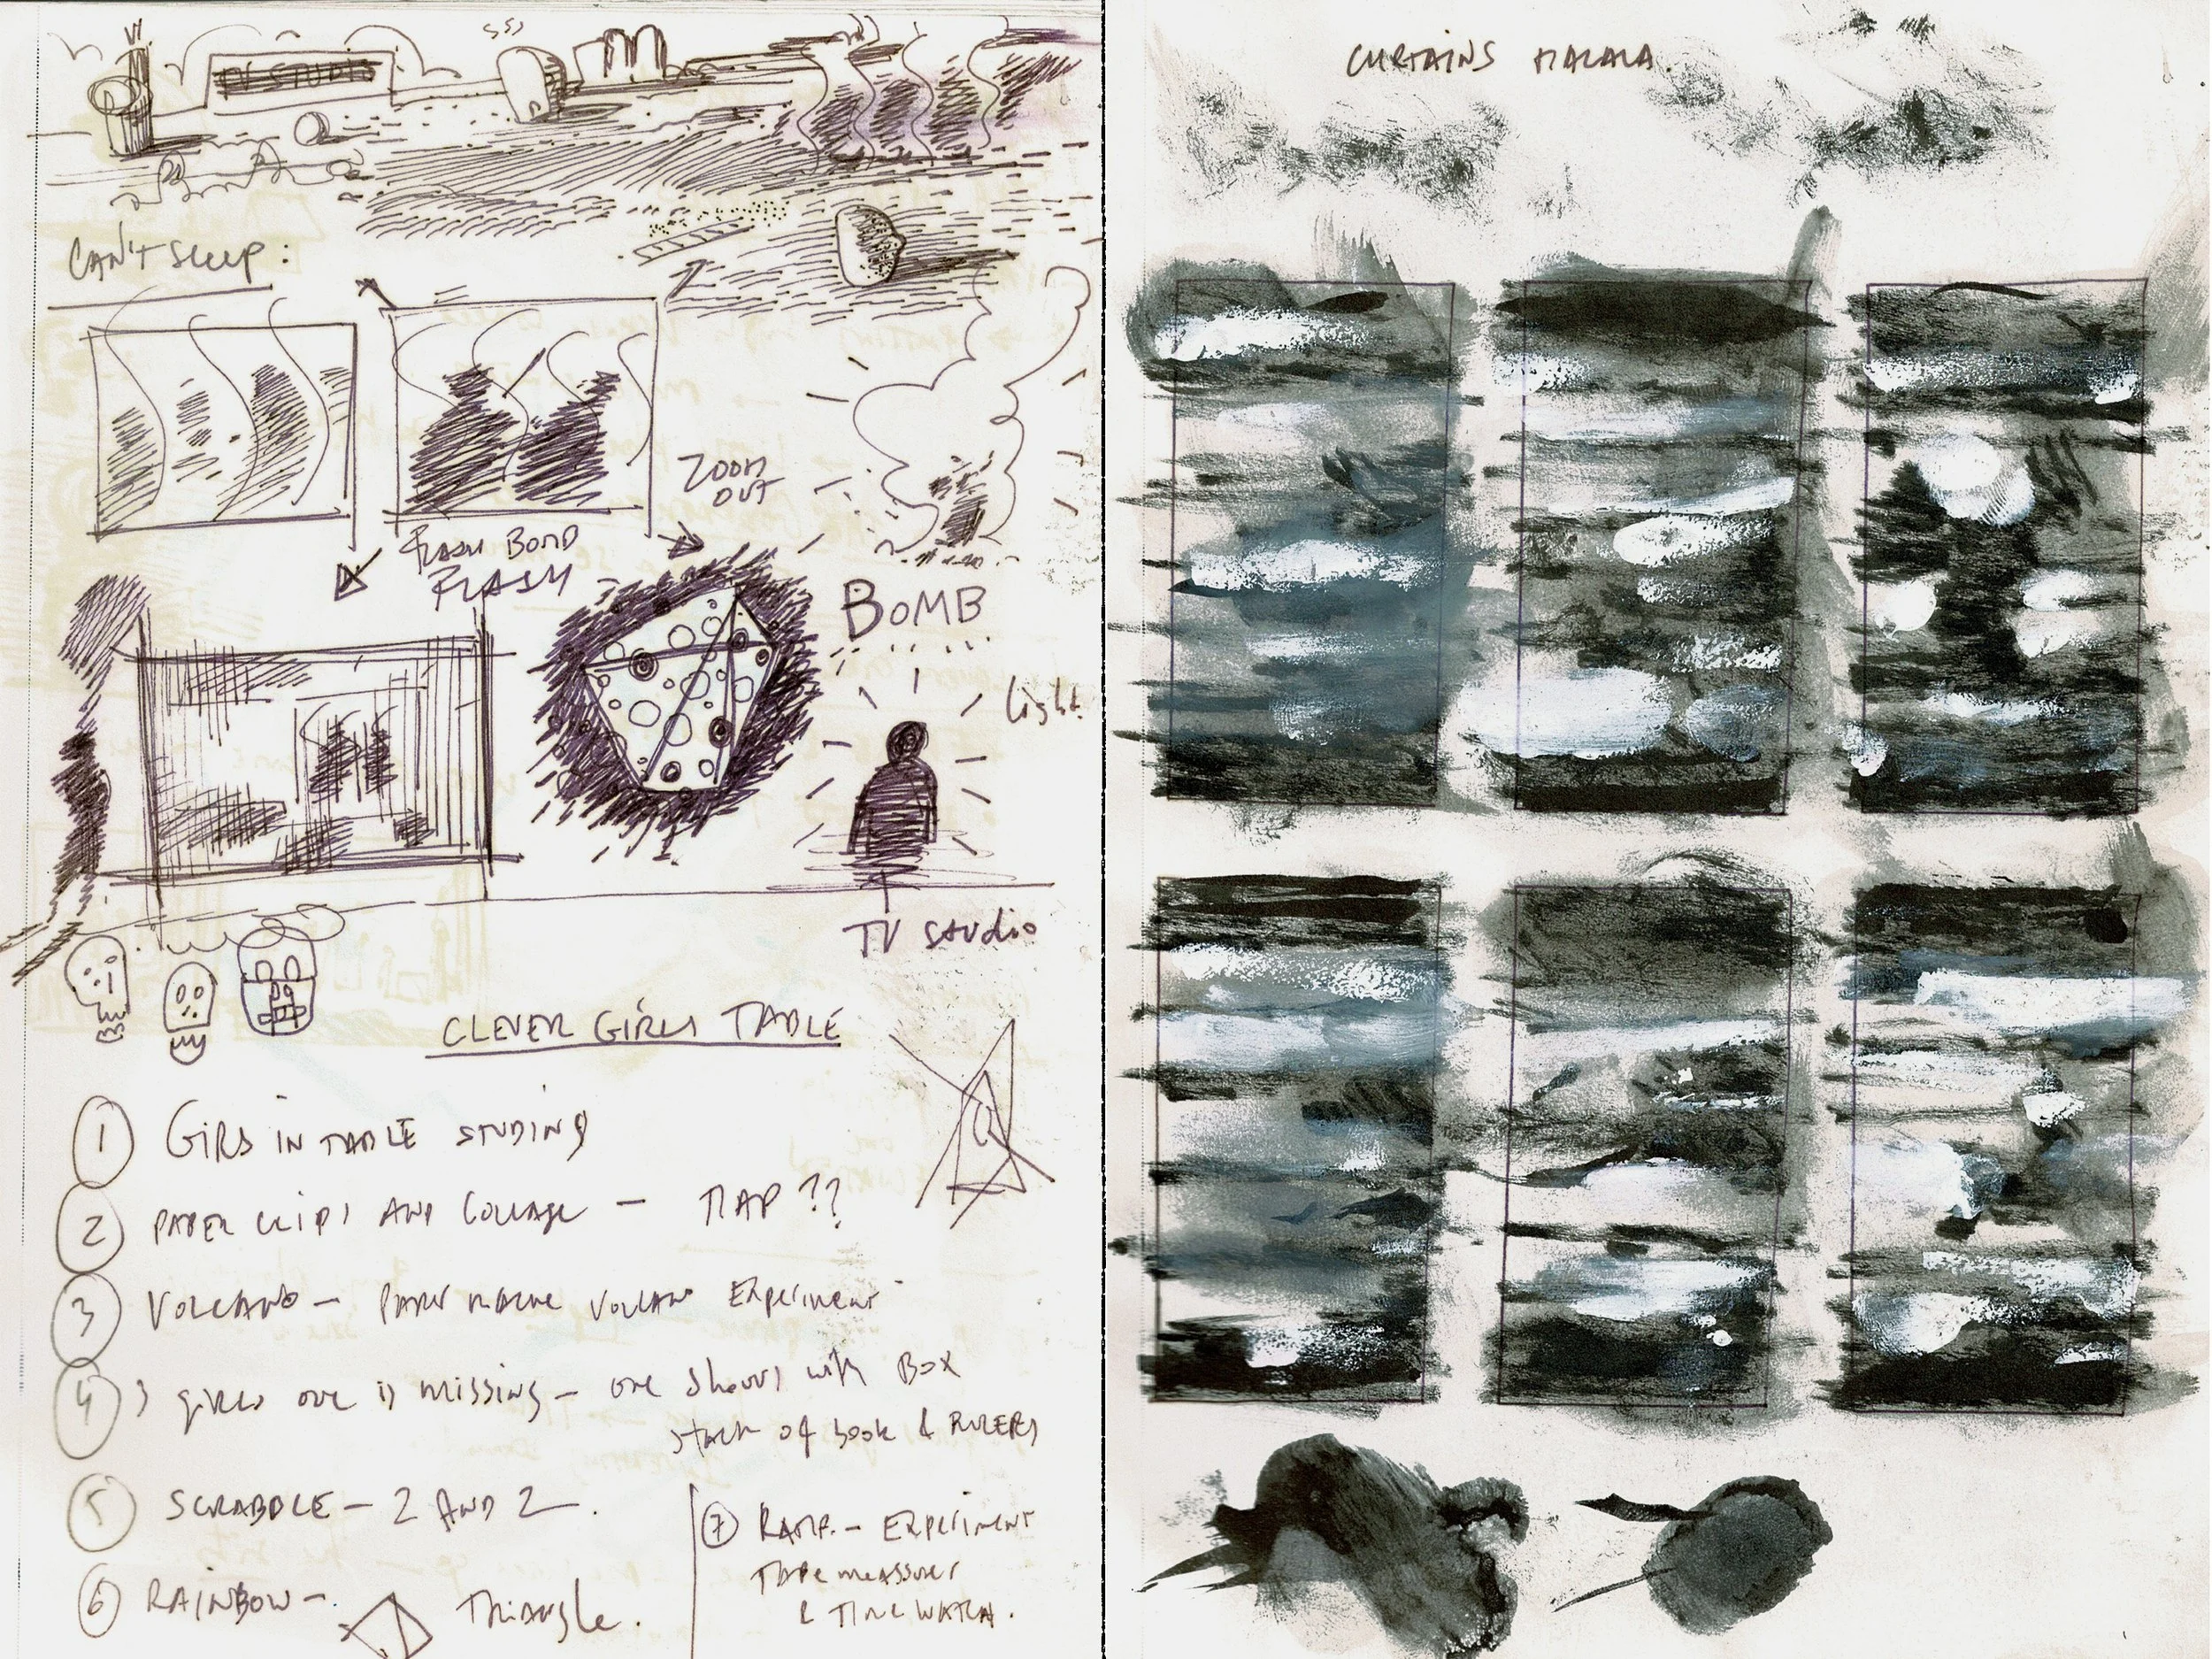 TV STUDIO
CAN'T SLEEP:
ZOOM
OUT
FLASH BOMB
FLASH
BOMB
light
TV STUDIO
CLEVER GIRLS TABLE
1 GIRS IN TABLE STUDING
2 PAPER CLIPS AND COLLAGE — MAP ??
3 VOLCANO — PAPER MACHE VOLCANO EXPERIMENT
4 3 girls one is missing — one shows with BOX
stack of book & RULERS
5 SCRABBLE — 2 AND 2 .
6 RAINBOW — TRIANGLE.
7 RAMP. — EXPERIMENT
TAPE MEASSURES
& TIME WATCH.
CURTAINS MALALA.